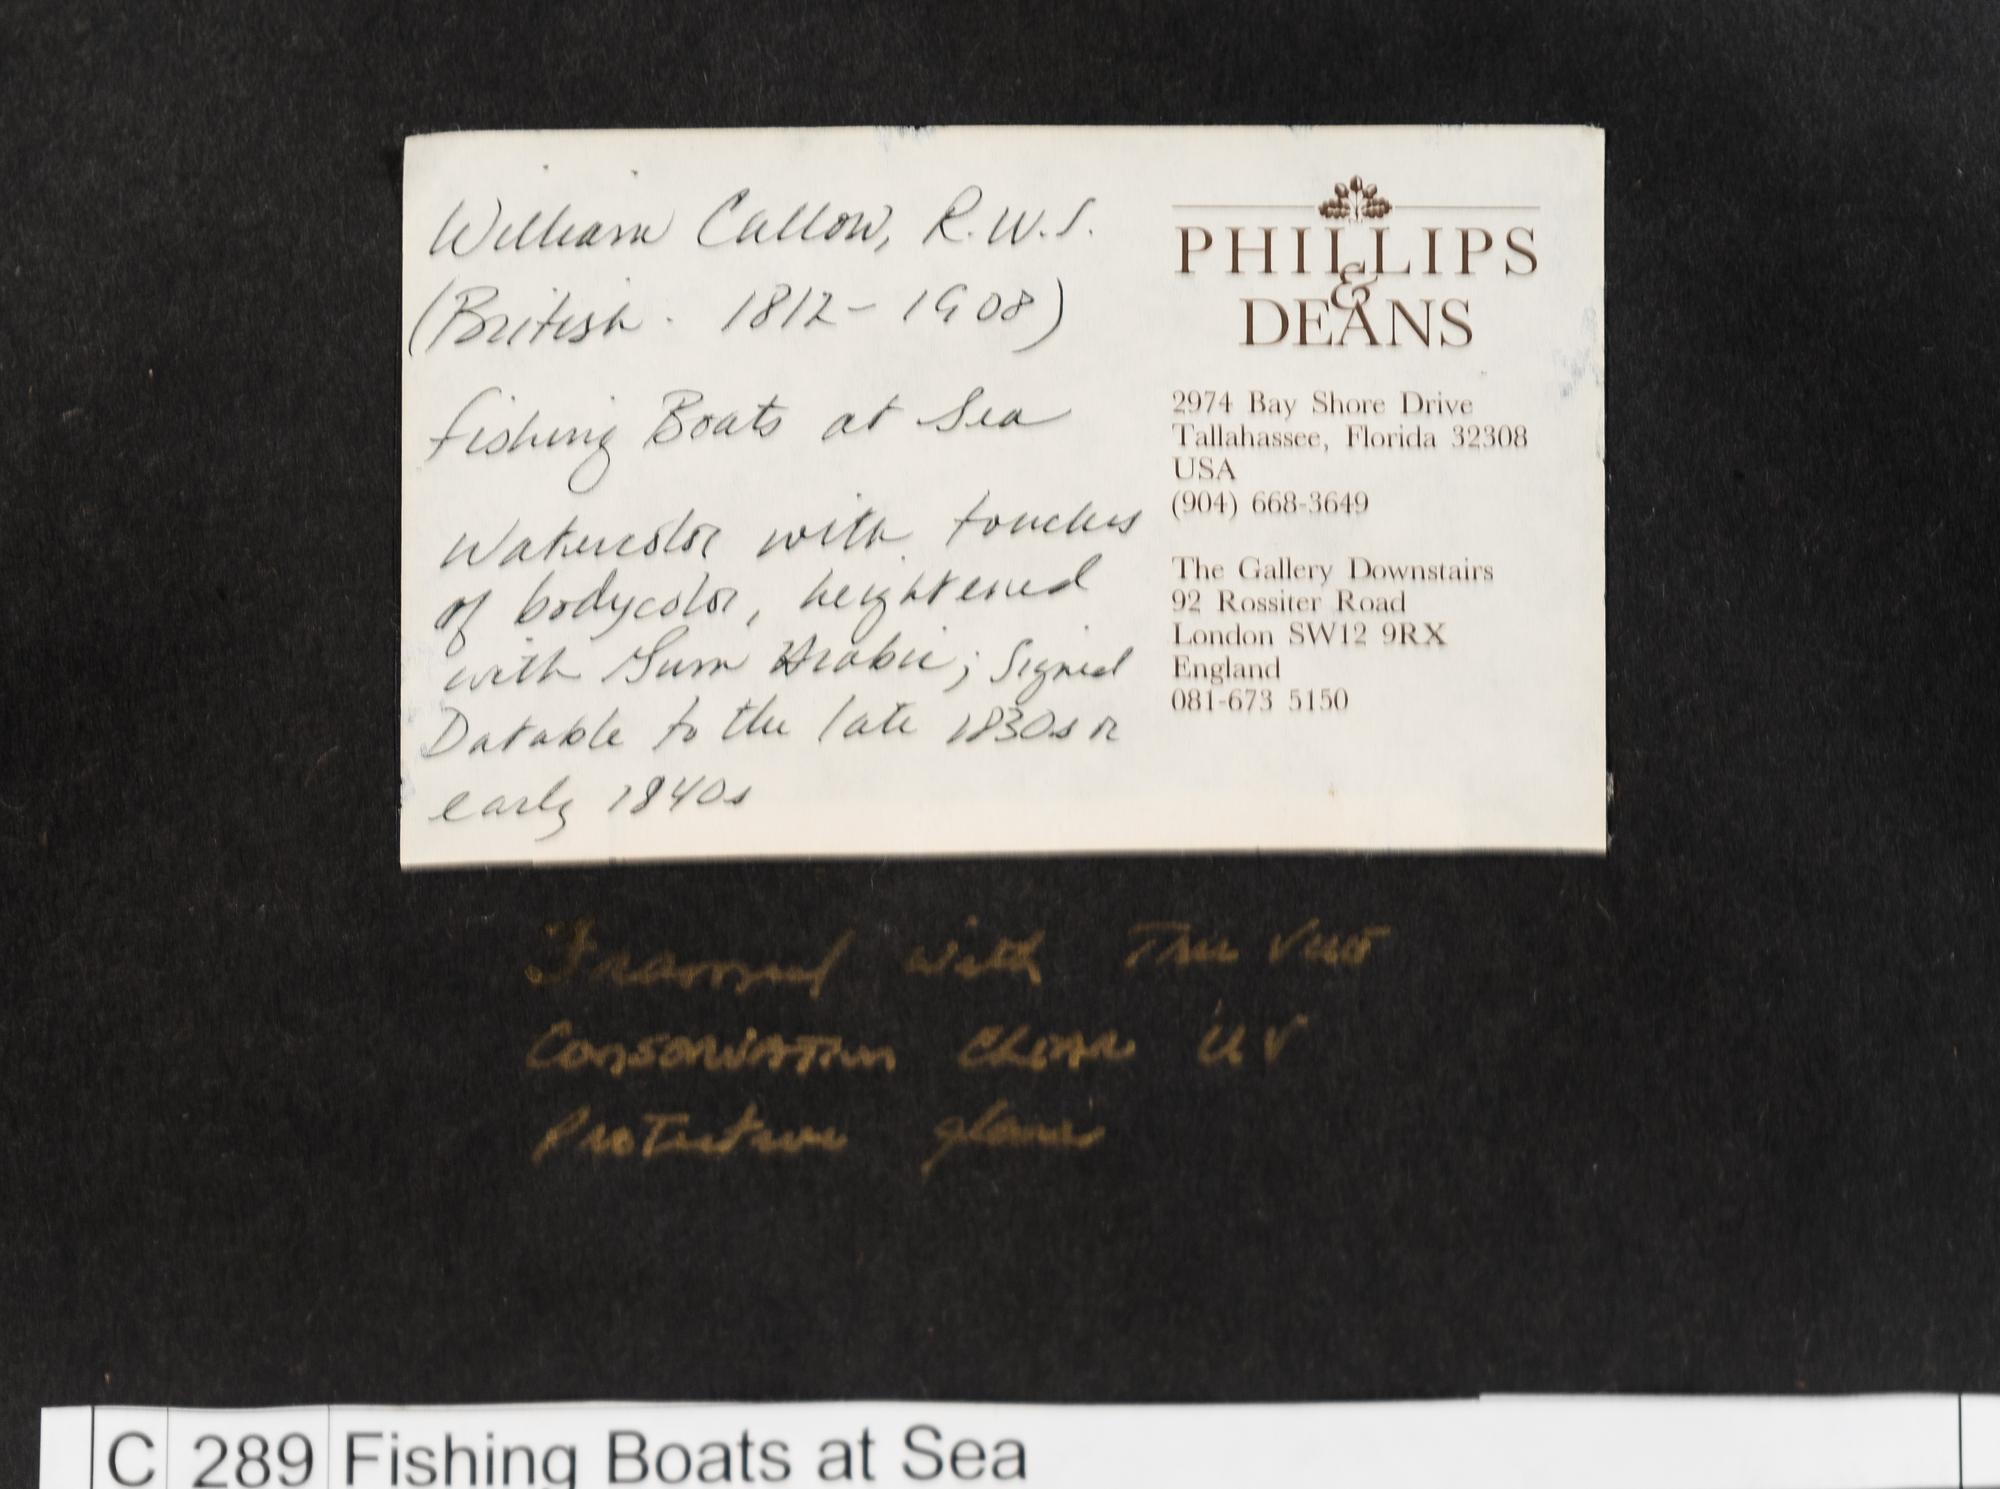 William Callow, R.W.S.
(British. 1812-1908)
Fishing Boats at Sea
Watercolor with touches
of bodycolor, heightened
with Gum Arabic; Signed
Datable to the late 1830s or
early 1840s
PHILLIPS
&
DEANS
2974 Bay Shore Drive
Tallahassee, Florida 32308
USA
(904) 668-3649
The Gallery Downstairs
92 Rossiter Road
London SW12 9RX
England
081-673 5150
Framed with Tru Vue
Conservation Clear UV
Protective glass
C 289 Fishing Boats at Sea